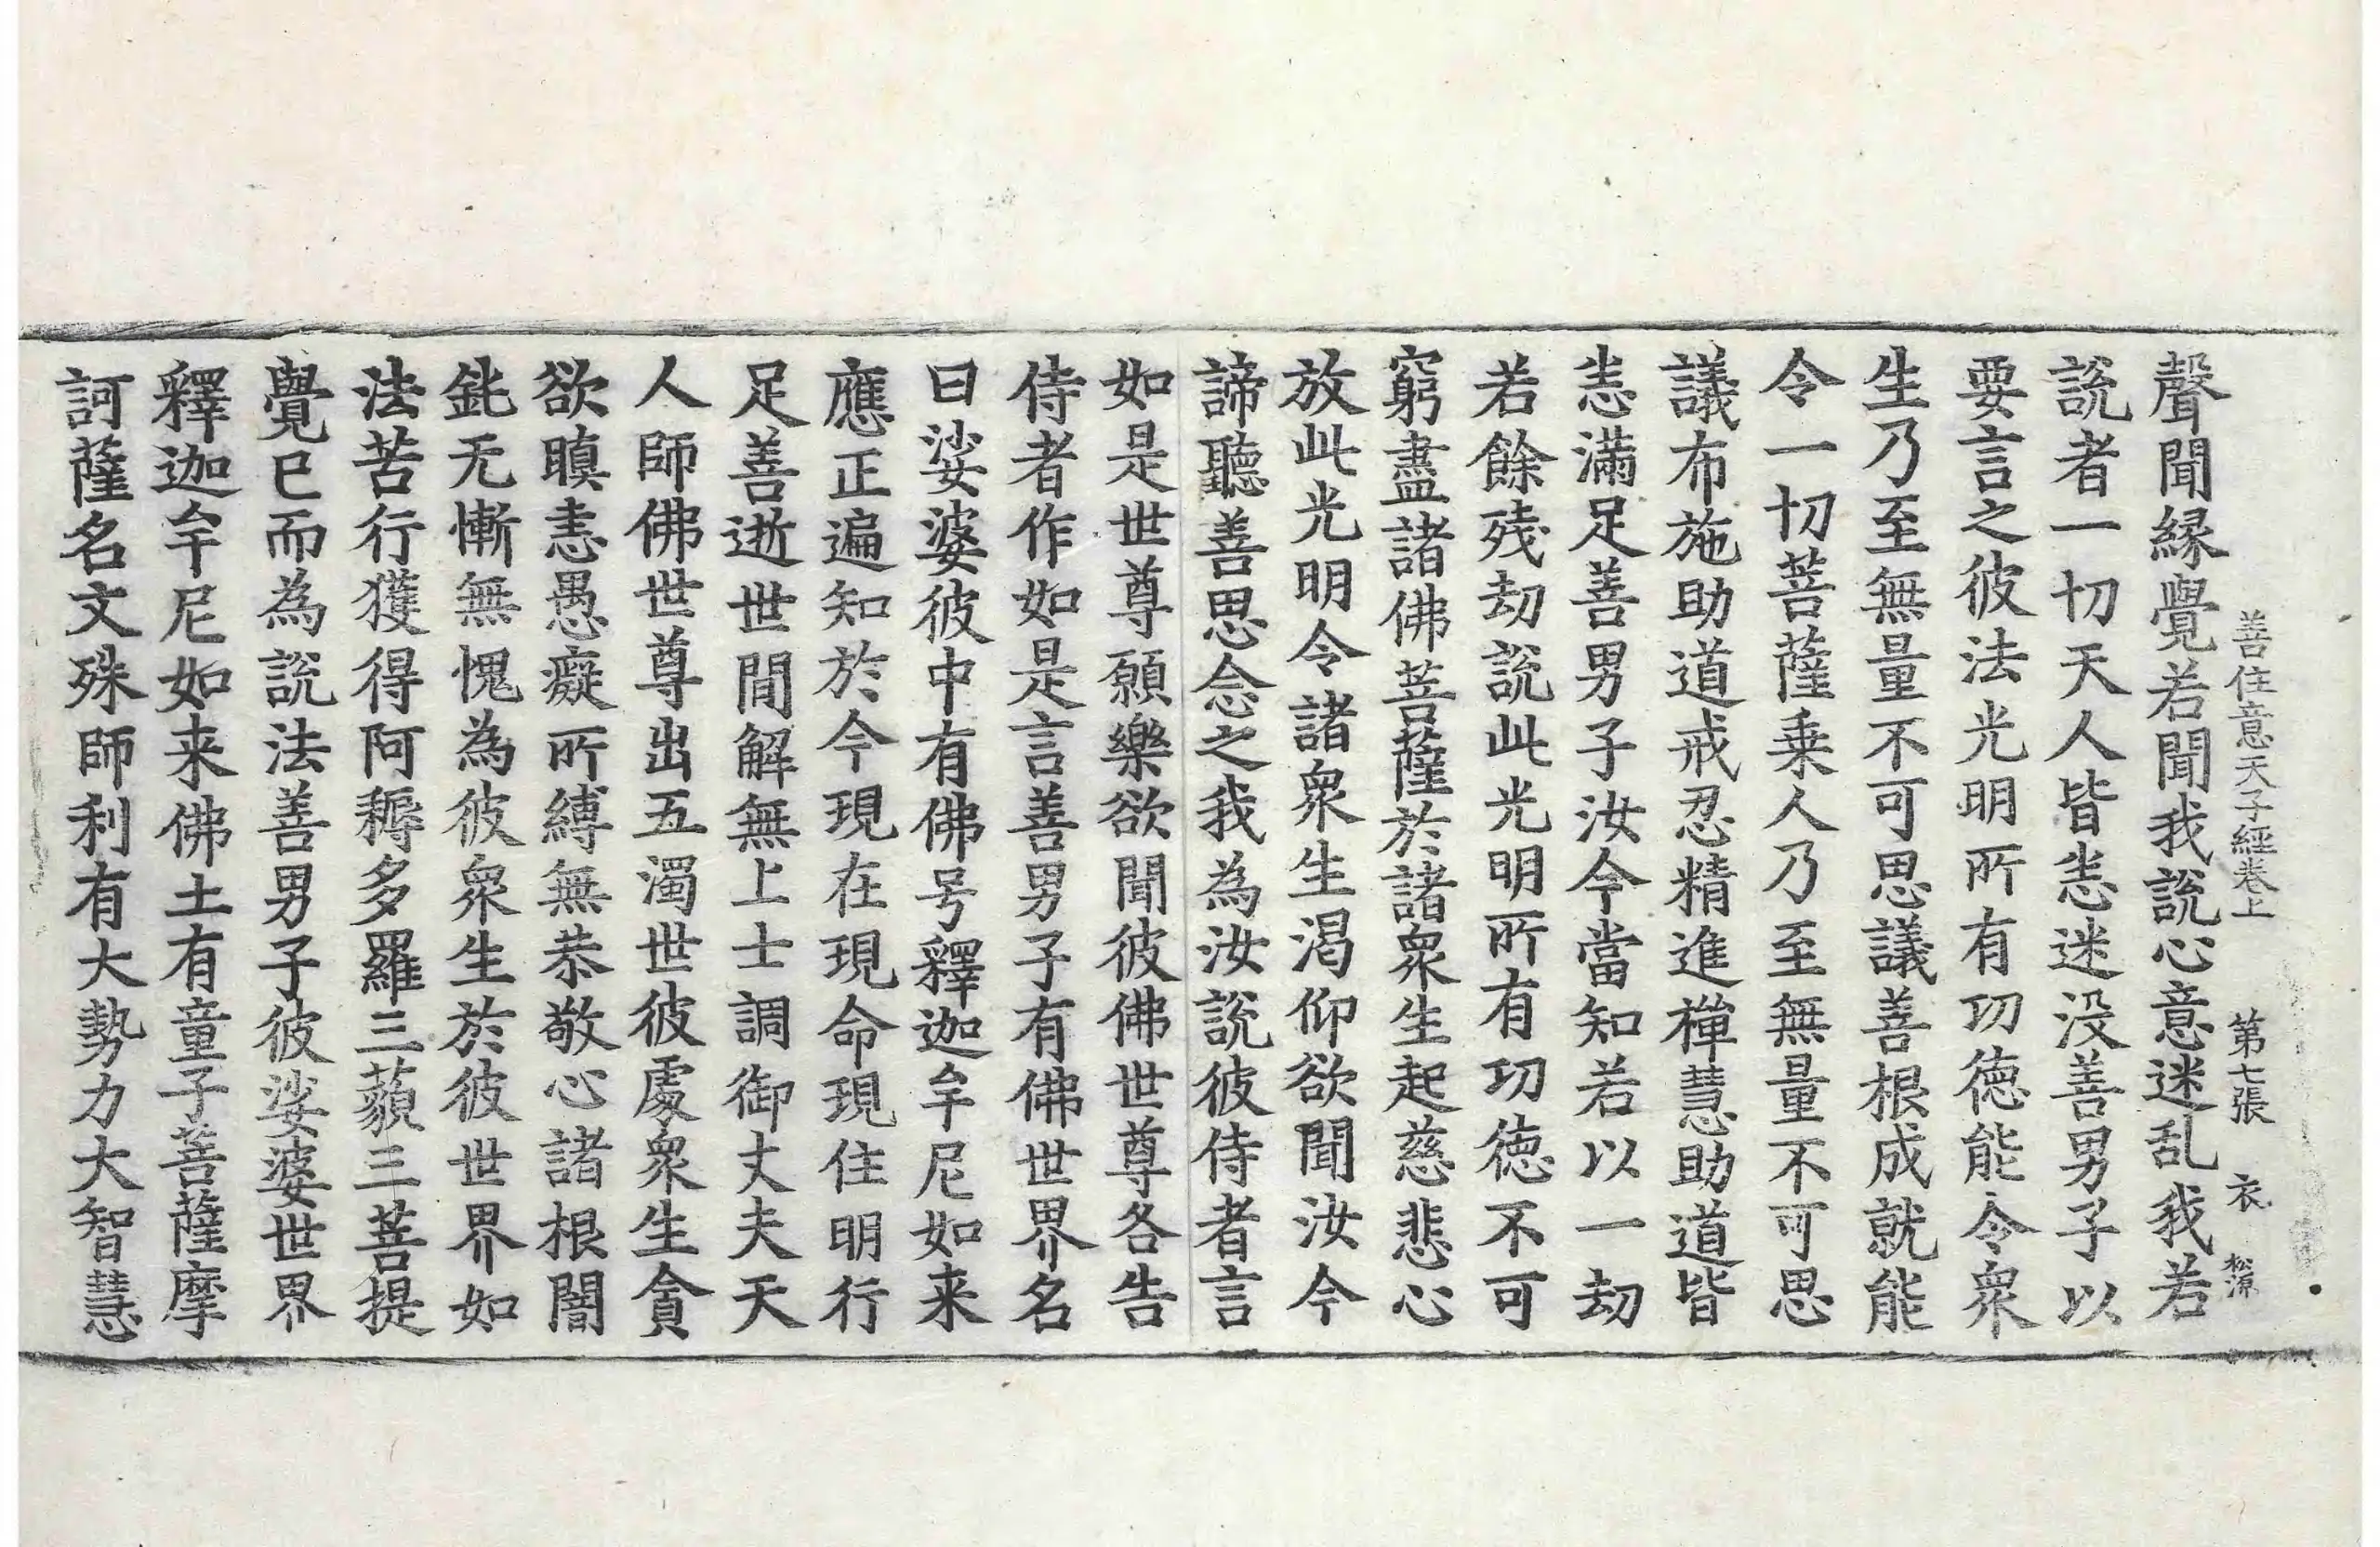 善住意天子經卷上 第七張 衣 松源
聲聞縁覺若聞我說心意迷乱我若
說者一切天人皆恚迷没善男子以
要言之彼法光明所有功徳能令衆
生乃至無量不可思議善根成就能
令一切菩薩乗人乃至無量不可思
議布施助道戒忍精進禪慧助道皆
恚滿足善男子汝今當知若以一劫
若餘殘劫說此光明所有功徳不可
窮盡諸佛菩薩於諸衆生起慈悲心
放此光明令諸衆生渴仰欲聞汝今
諦聽善思念之我為汝說彼侍者言
如是世尊願樂欲聞彼佛世尊各告
侍者作如是言善男子有佛世界名
曰娑婆彼中有佛号釋迦牟尼如来
應正遍知於今現在現命現住明行
足善逝世間解無上士調御丈夫天
人師佛世尊出五濁世彼處衆生貪
欲瞋恚愚癡所縛無恭敬心諸根闇
鈍无慚無愧為彼衆生於彼世界如
法苦行獲得阿耨多羅三藐三菩提
覺已而為說法善男子彼娑婆世界
釋迦牟尼如来佛土有童子菩薩摩
訶薩名文殊師利有大勢力大智慧